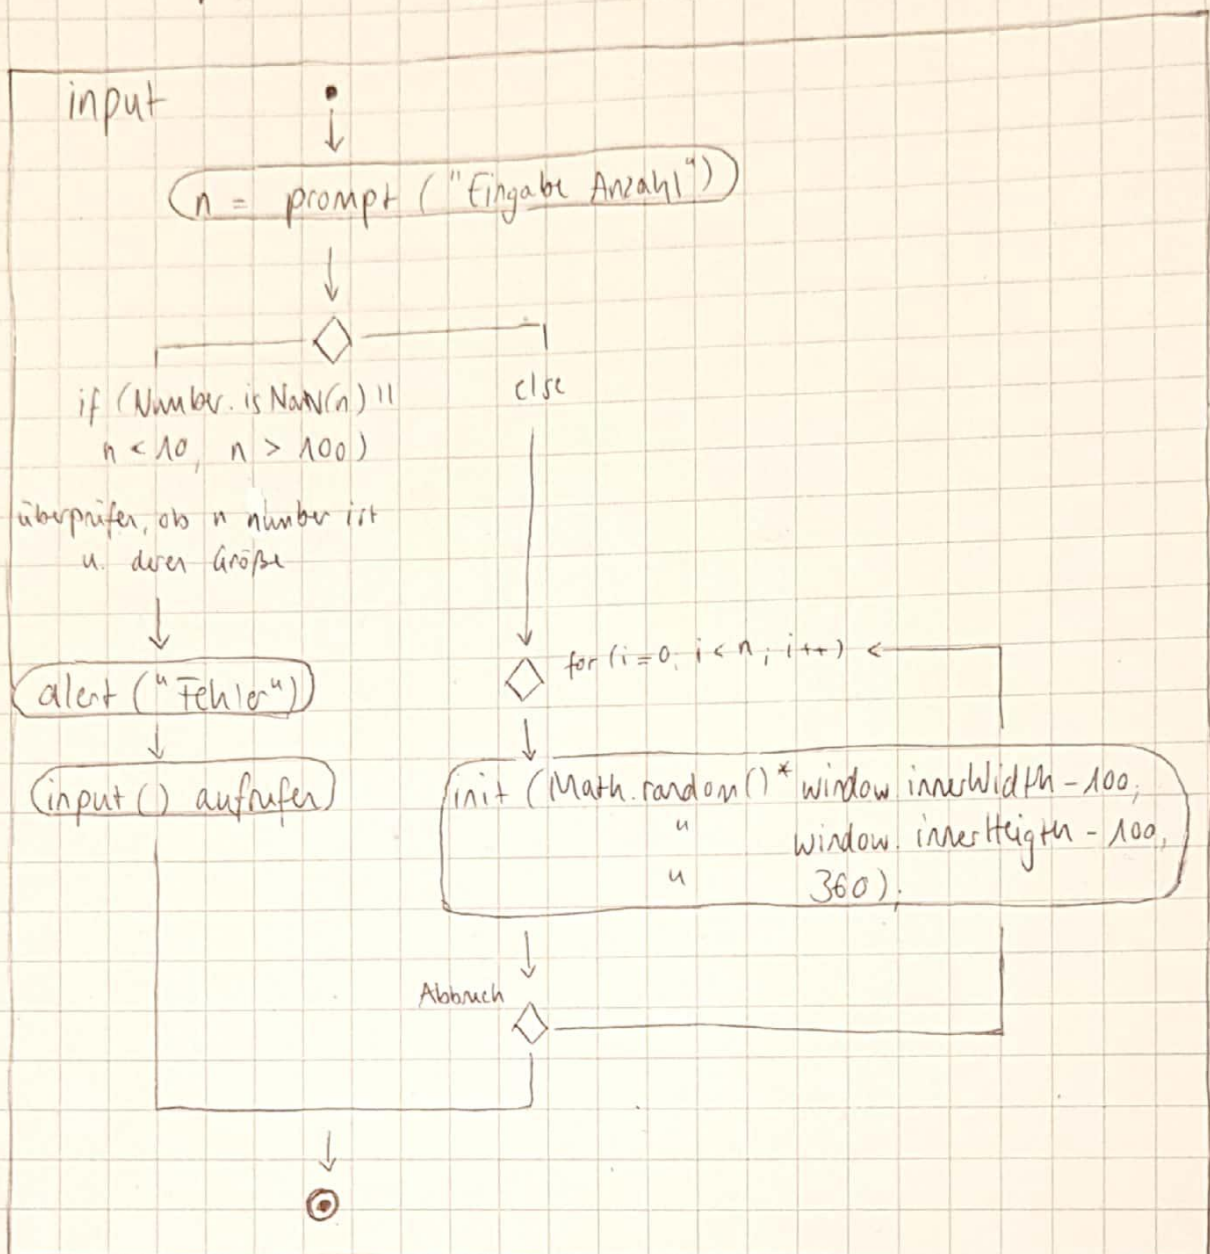 input
n = prompt ("Eingabe Anzahl")
if (Number.isNaN(n) ||
n < 10, n > 100)
else
überprüfen, ob n number ist
u. deren Größe
for (i = 0; i < n; i++)
alert ("Fehler")
input() aufrufen
init (Math.random() * window.innerWidth - 100,
" window.innerHeigth - 100,
" 360);
Abbruch